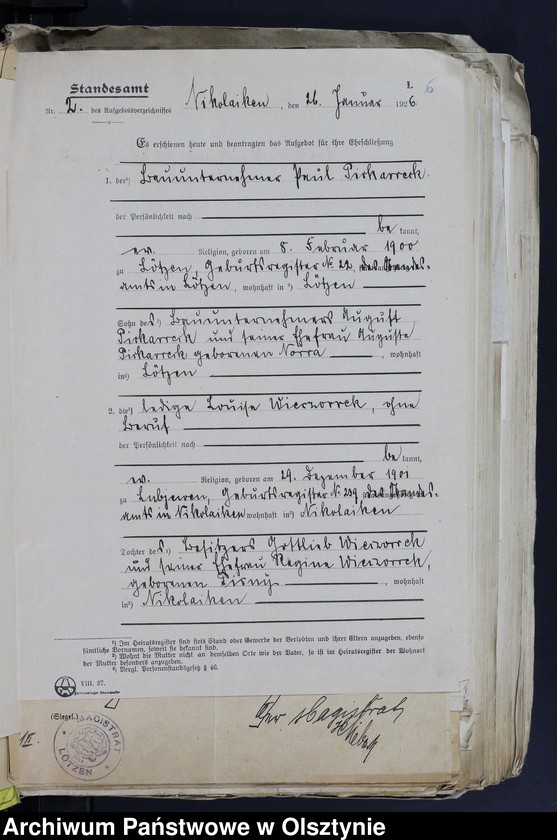 I. 6
Standesamt
Nr. 2. des Aufgebotsverzeichnisses Nikolaiken, den 26. Januar 1926
Es erschienen heute und beantragten das Aufgebot für ihre Eheschließung
1. der¹) Bauunternehmer Paul Piekarreck
der Persönlichkeit nach
be kannt,
ev. Religion, geboren am 8. Februar 1900
zu Lötzen, Geburtsregister Nr. 22, des Standes-
amts in Lötzen, wohnhaft in ²) Lötzen
Sohn des ¹) Bauunternehmers August
Piekarreck und seiner Ehefrau Auguste
Piekarreck geborenen Norra, wohnhaft
in²) Lötzen
2. die¹) ledige Louise Wierzorrek, ohne
Beruf
der Persönlichkeit nach
be kannt,
ev. Religion, geboren am 29. Dezember 1901
zu Lubjewen, Geburtsregister Nr. 229, des Standes-
amts in Nikolaiken wohnhaft in²) Nikolaiken
Tochter des ¹) Besitzers Gottlieb Wierzorrek
und seiner Ehefrau Regine Wierzorrek,
geborenen Pisny, wohnhaft
in²) Nikolaiken
¹) Im Heiratsregister sind stets Stand oder Gewerbe der Verlobten und ihrer Eltern anzugeben, ebenso
sämtliche Vornamen, soweit sie bekannt sind.
²) Wohnt die Mutter nicht an demselben Orte wie der Vater, so ist im Heiratsregister der Wohnort
der Mutter besonders anzugeben.
³) Vergl. Personenstandsgesetz § 46.
VIII. 27.
(Siegel.)
MAGISTRAT
LÖTZEN
Der Magistrat
Archiwum Państwowe w Olsztynie